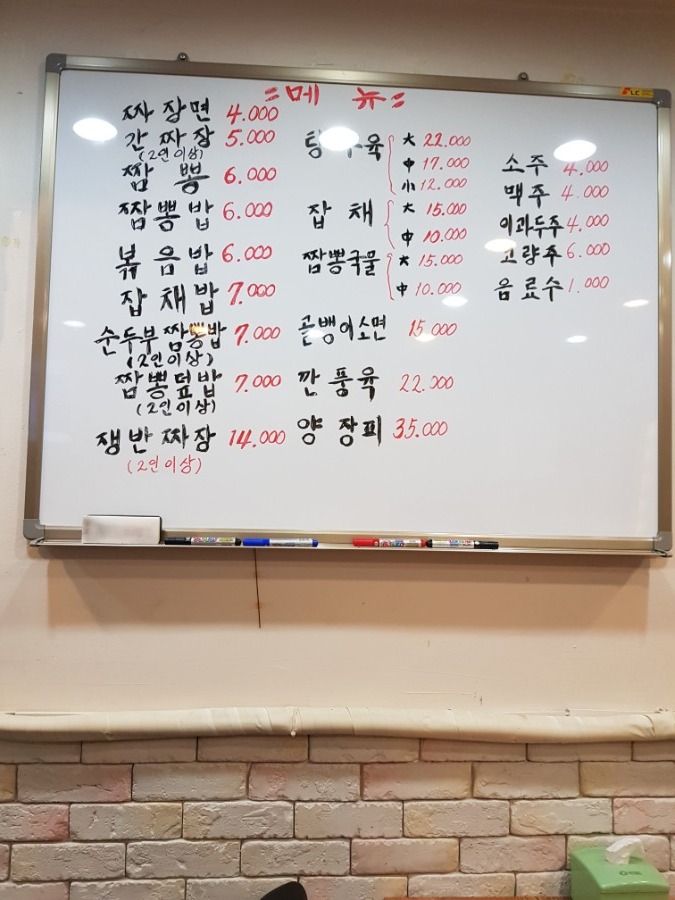 =메 뉴=
짜장면 4.000
간짜장 5.000
(2인이상)
짬 뽕 6.000
짬뽕밥 6.000
볶음밥 6.000
잡채밥 7.000
순두부짬뽕밥 7.000
(2인이상)
짬뽕덮밥 7.000
(2인이상)
쟁반짜장 14.000
(2인이상)
탕수육 大 22.000
中 17.000
小 12.000
잡 채 大 15.000
中 10.000
짬뽕국물 大 15.000
中 10.000
골뱅이소면 15.000
깐풍육 22.000
양장피 35.000
소주 4.000
맥주 4.000
이과두주 4.000
고량주 6.000
음료수 1.000